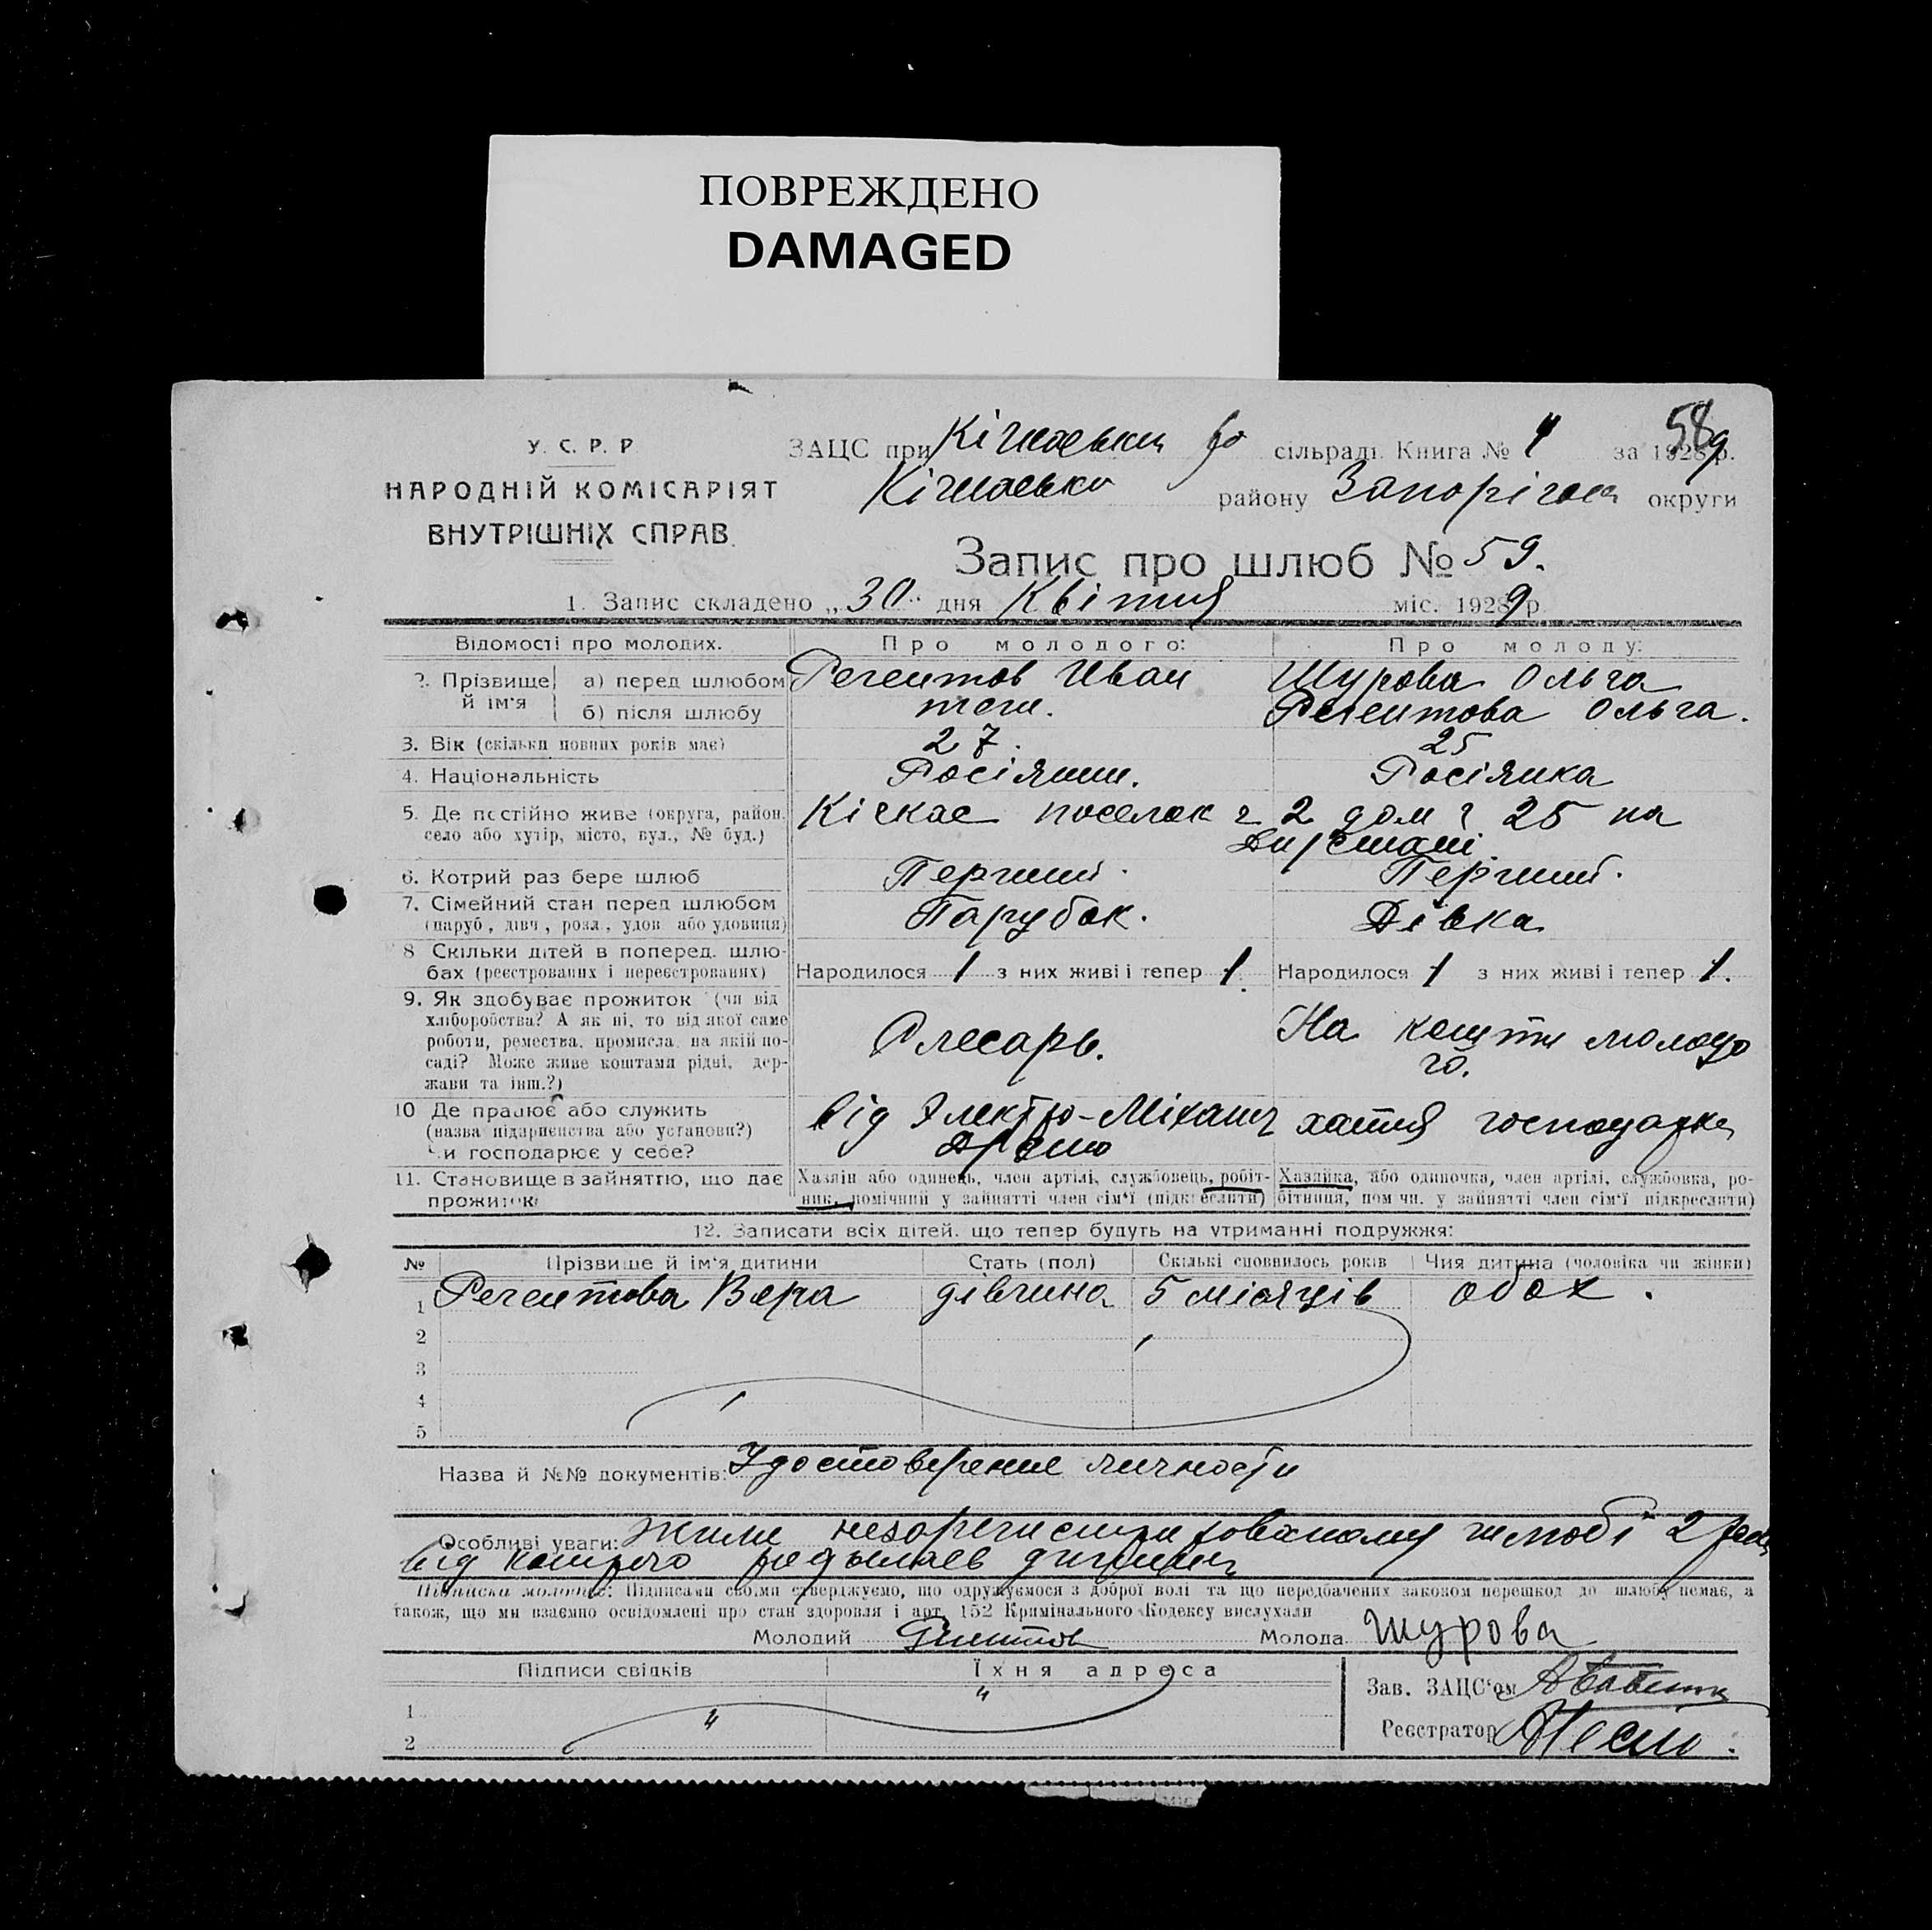 ПОВРЕЖДЕНО
DAMAGED
58
У. С. Р. Р.
НАРОДНІЙ КОМІСАРІЯТ
ВНУТРІШНІХ СПРАВ.
ЗАЦС при сільраді. Книга № 4 за 1929 р.
району округи
Запис про шлюб № 59.
1. Запис складено „30" дня Квітня міс. 1929 р.
Відомості про молодих.
Про молодого:
Про молоду:
2. Прізвище й ім'я
а) перед шлюбом Регентов Иван Шурова Ольга
б) після шлюбу Регентова Ольга.
3. Вік (скільки повних років має) 27. 25
4. Національність Росіянин. Росіянка
5. Де постійно живе (округа, район, село або хутір, місто, вул., № буд.) Кічкас поселок 2 дом 25 на
6. Котрий раз бере шлюб Перший. Перший.
7. Сімейний стан перед шлюбом (паруб., дівч., розл., удов. або удовиця) Парубок. Дівка
8 Скільки дітей в поперед. шлюбах (реєстрованих і нереєстрованих) Народилося 1 з них живі і тепер 1. Народилося 1 з них живі і тепер 1.
9. Як здобуває прожиток (чи від хліборобства? А як ні, то від якої саме роботи, ремества, промисла, на якій посаді? Може живе коштами рідні, держави та інш.?) Слесарь. На кошти молодо
го.
10 Де працює або служить (назва підприємства або установи?) Чи господарює у себе? від Электро- хатня
11. Становище в зайняттю, що дає прожиток
Хазяїн або одинець, член артілі, службовець, робітник, помічний у зайнятті член сім'ї (підкреслити)
Хазяйка, або одиночка, член артілі, службовка, робітниця, помічн. у зайнятті член сім'ї підкреслити)
12. Записати всіх дітей, що тепер будуть на утриманні подружжя:
№ Прізвище й ім'я дитини Стать (пол) Скількі сповнилось років Чия дитина (чоловіка чи жінки)
1 Регентова Вера дівчина 5 місяців обох.
2
3
4
5
Назва й №№ документів: Удостоверение личности
Особливі уваги: Жили шлюбі 2
від
Підписка молодих: Підписами своїми стверджуємо, що одружуємося з доброї волі та що передбачених законом перешкод до шлюбу немає, а
також, що ми взаємно освідомлені про стан здоровля і арт. 152 Кримінального Кодексу вислухали
Молодий Молода Шурова
Підписи свідків Їхня адреса
1
2
Зав. ЗАЦС'ом
Реєстратор